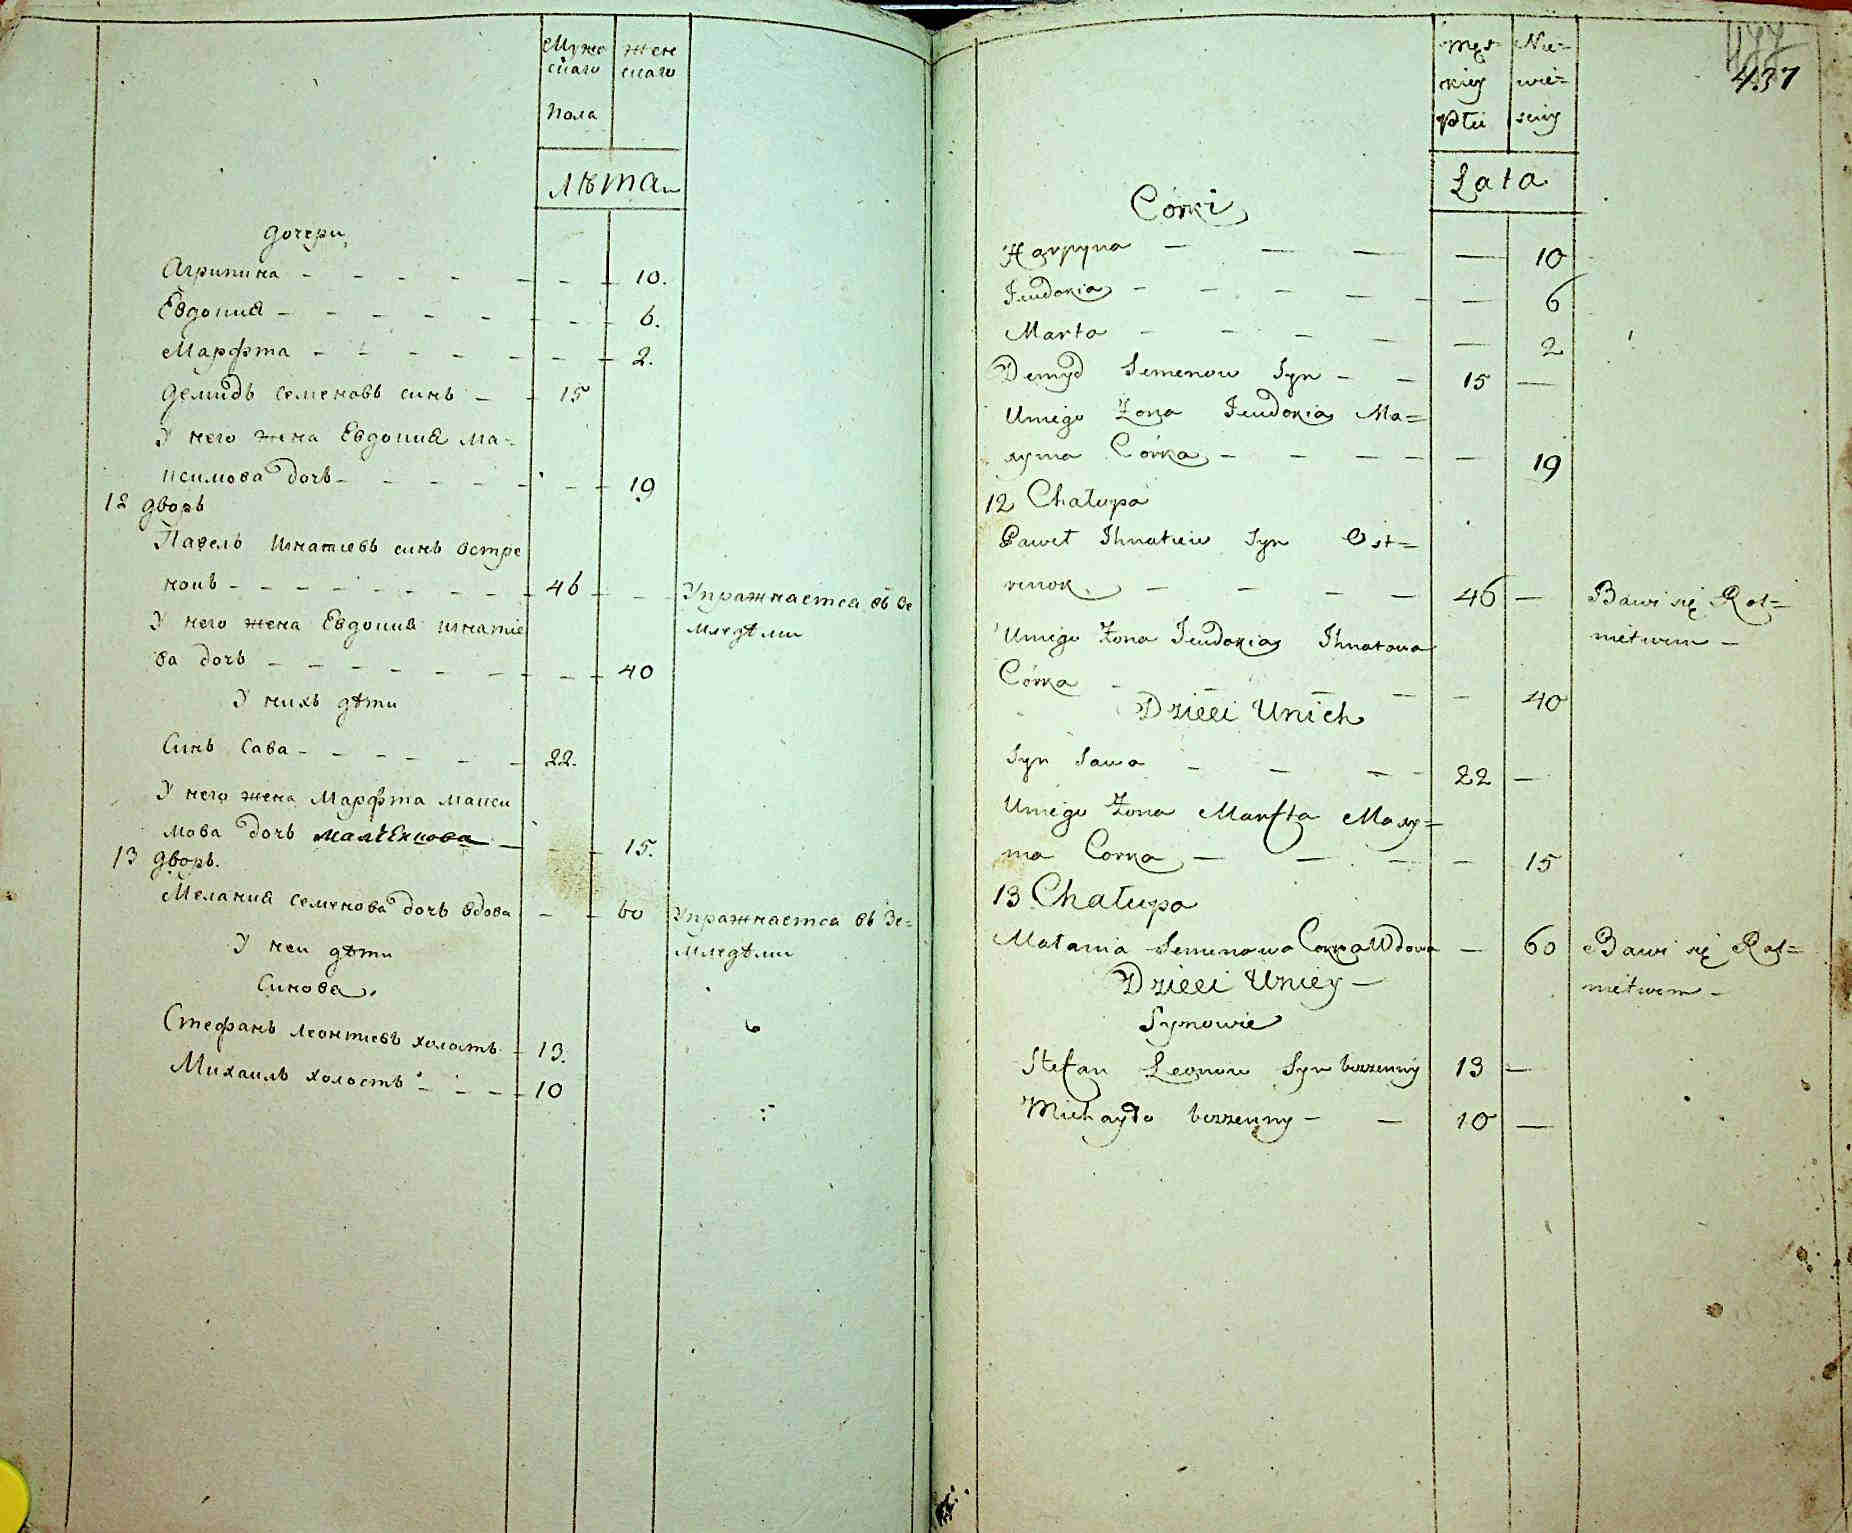 Мужес
каго
Пола
Жен
скаго
лѣта
дочери
Агрипина - - - - - - - 10.
Евдокия - - - - - - - 6.
Марфта - - - - - - - 2.
Демидъ Семеновъ синъ - - 15
У него жена Евдокия Ма-
ксимова дочъ - - - - - - 19
12 дворъ
Павелъ Игнатиевъ синъ Востре
нокъ - - - - - - - - 46 - - Упражняется въ Зе
мледѣлии
У него жена Евдокия Игнатие
ва дочъ - - - - - - - - 40
У нихъ дѣти
Синъ Сава - - - - - - 22.
У него жена Марфта Макси
мова дочъ - - - 15.
13 дворъ.
Мелания Семенова дочъ вдова - - 60 Упражняется въ Зе=
мледѣлии
У неи дѣти
Синова
Стефанъ Леонтиевъ холостъ - 13.
Михаилъ холостъ - - - - 10
437
Męs=
kiey
Płci
Nie=
wie=
sciey
Łata
Córki
Agrypyna - - - - 10
Jeudokia - - - - - - 6
Marta - - - - - 2
Demyd Semenow Syn - - 15 -
Uniego Zona Jeudokia Ma=
xyma Córka - - - - - - 19
12 Chałupa
Paweł Ihnatiew Syn Ost=
renok - - - - - 46 - Bawi się Rol=
nictwem -
Uniego Zona Jeudokia Ihnatowa
Córka - - - 40
Dzieci Unich
Syn Sawa - - - - 22 -
Uniego Zona Marfta Maxy=
ma Corka - - - - 15
13 Chałupa
Małania Semenowa Corka Wdowa - 60 Bawi się Rol=
nictwem -
Dzieci Uniey -
Synowie
Stefan Leonow Syn bezzenny 13 -
Michayło bezzenny - - 10 -